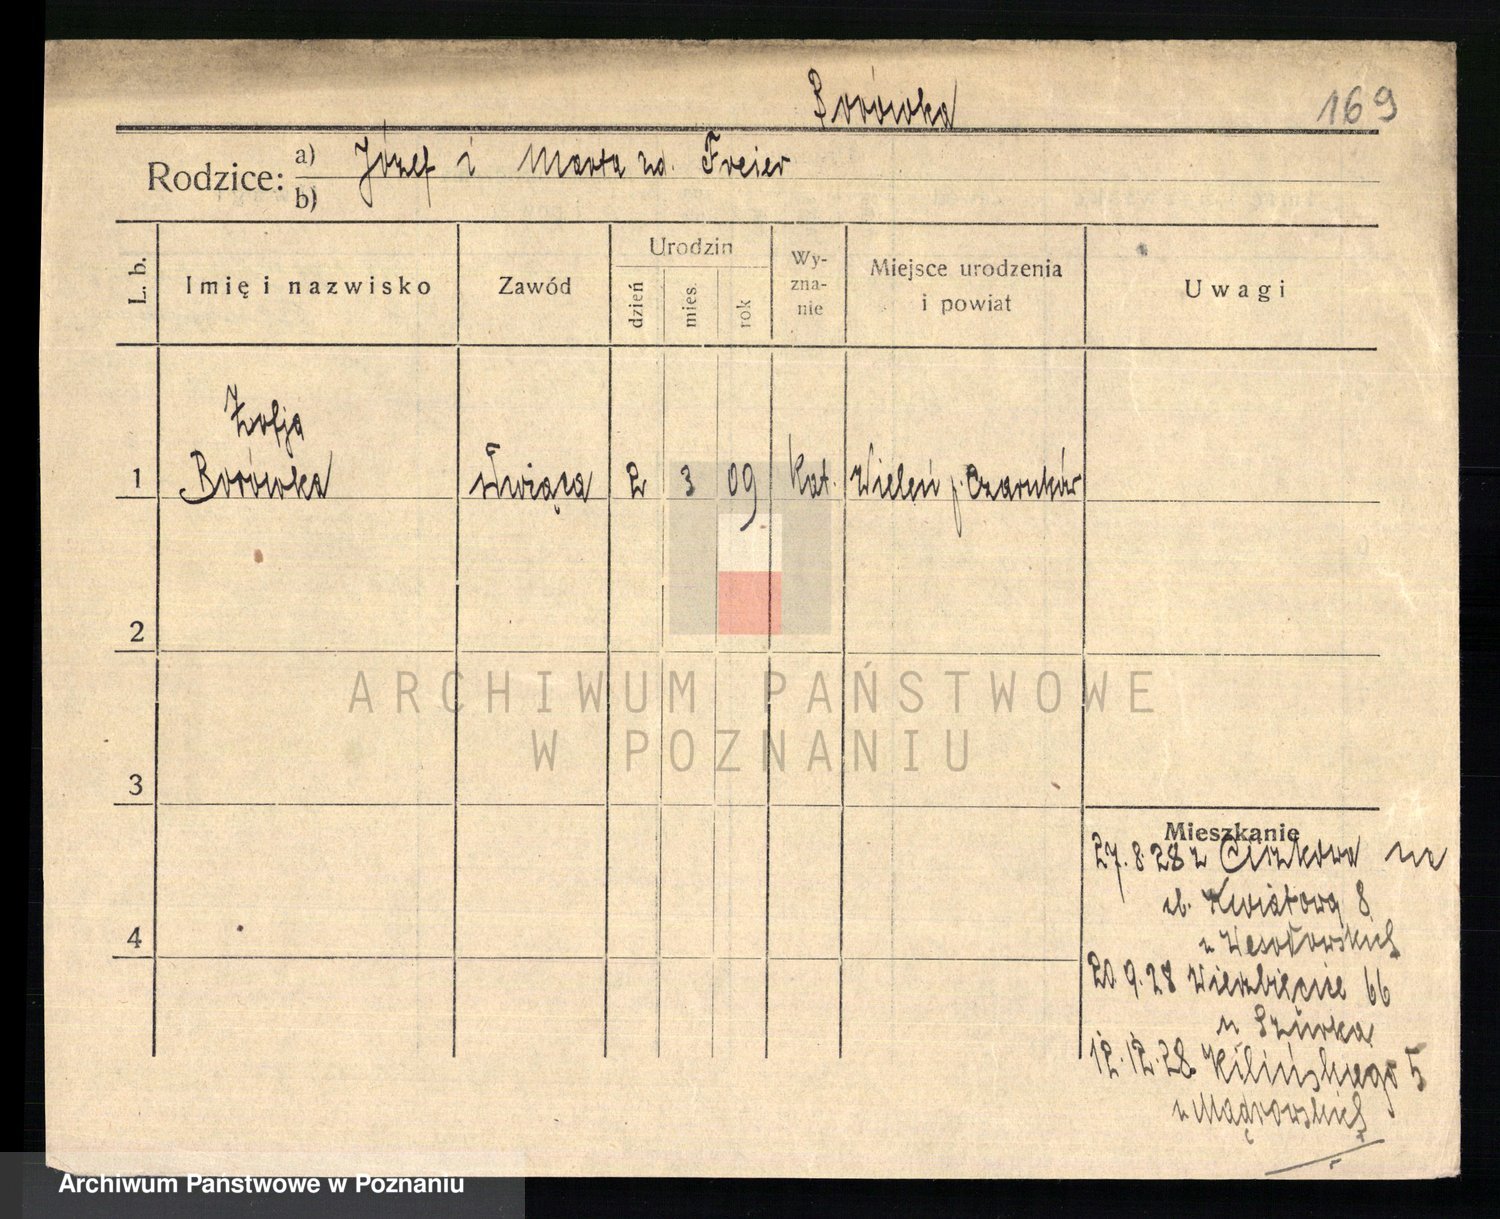 Borówka
169
Rodzice:
a) Józef i Marta zd. Freier
b)
L. b.
Imię i nazwisko
Zawód
Urodzin
dzień
mies.
rok
Wy-
zna-
nie
Miejsce urodzenia
i powiat
Uwagi
Zofja
1 Borówka służąca 2 3 09 kat. Wieleń p. Czarnków
2
3
4
Mieszkanie
27.8.28 z Ciszkowa na
ul. Kwiatową 8
u Wesołowskich
20 9.28 Wierzbięcice 66
u Szurka
12.12.28 Kilińskiego 5
u Mądrowskich
ARCHIWUM PAŃSTWOWE
W POZNANIU
Archiwum Państwowe w Poznaniu